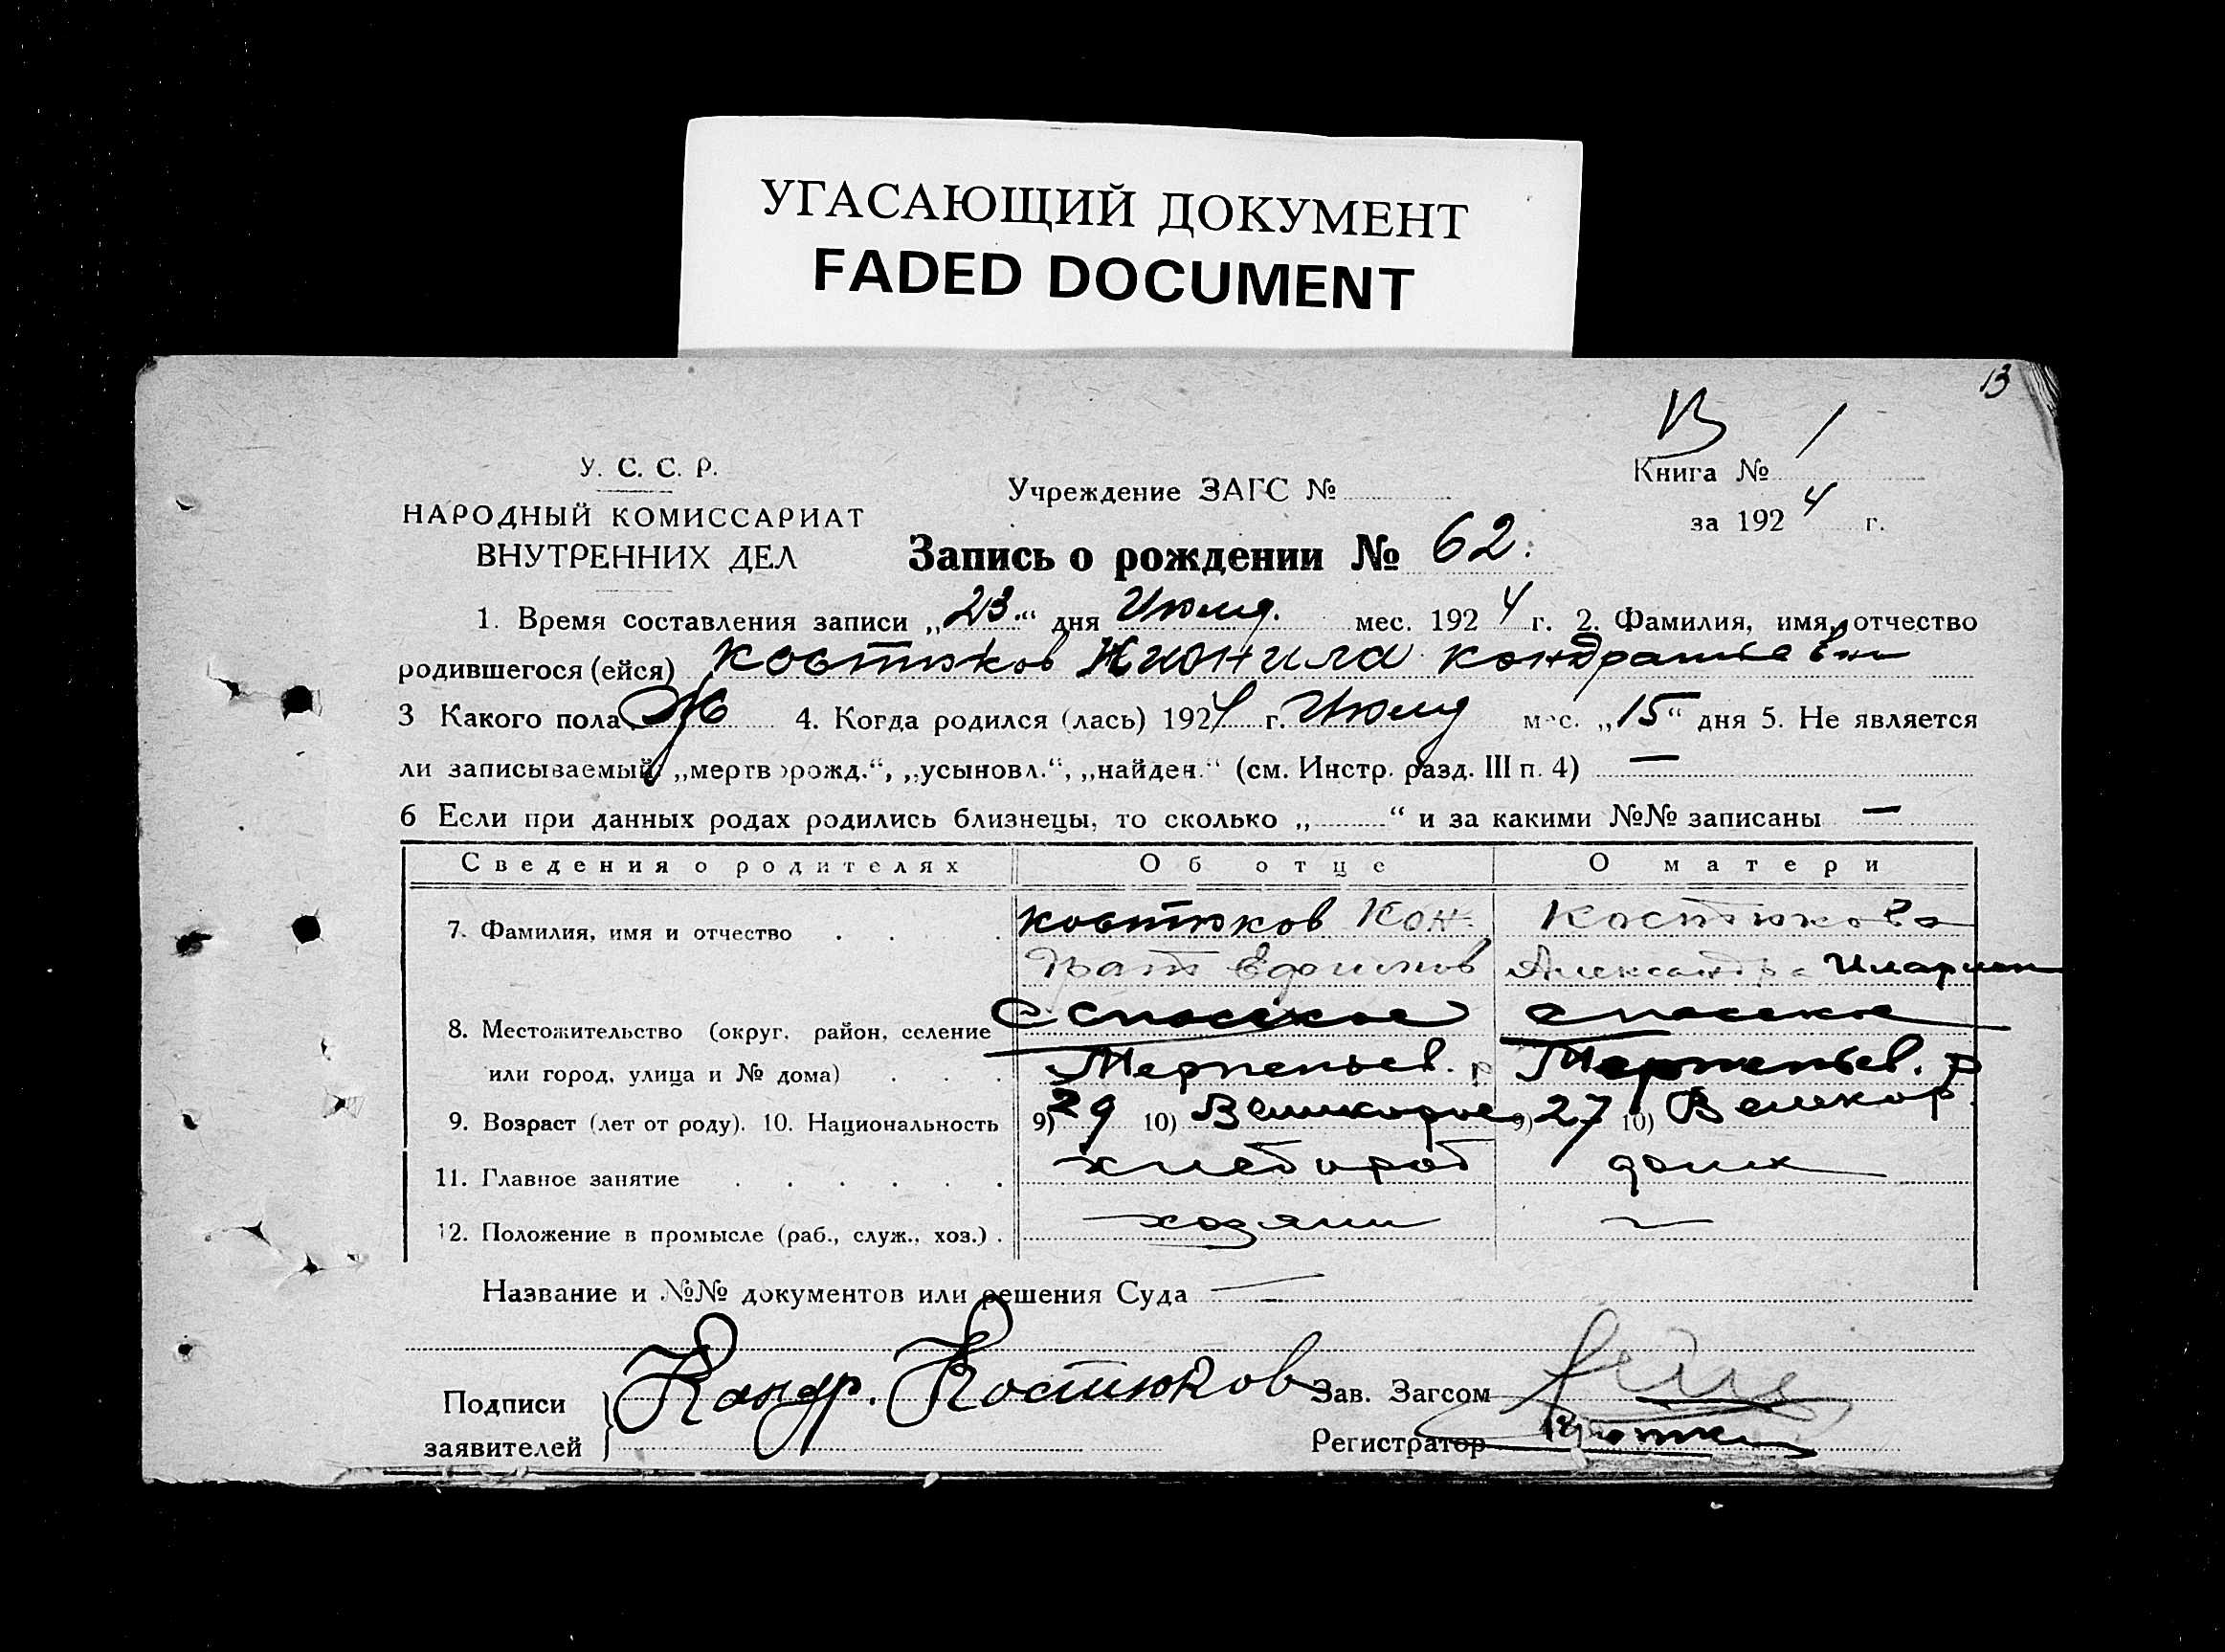 УГАСАЮЩИЙ ДОКУМЕНТ
FADED DOCUMENT
13
В 1
У. С. С. Р.
НАРОДНЫЙ КОМИССАРИАТ
ВНУТРЕННИХ ДЕЛ
Учреждение ЗАГС №
Книга №
за 1924 г.
Запись о рождении № 62.
1. Время составления записи „23“ дня Июля мес. 1924 г. 2. Фамилия, имя, отчество
родившегося (ейся) Костюков Нионила Кондратьевн
3 Какого пола Ж 4. Когда родился (лась) 1924 г. Июля мес. „15“ дня 5. Не является
ли записываемый: „мертворожд.“, „усыновл.“, „найден.“ (см. Инстр. разд. III п. 4) —
6 Если при данных родах родились близнецы, то сколько „ “ и за какими №№ записаны —
Сведения о родителях Об отце О матери
7. Фамилия, имя и отчество Костюков Кон- Костюкова
драт Ефимов Александра Иларион
8. Местожительство (округ, район, селение с. Спасское Спасское
или город, улица и № дома) Терпеньев. р Терпеньев. р
9. Возраст (лет от роду). 10. Национальность 9) 29 10) Великорос 9) 27 10) Великор.
11. Главное занятие хлебороб домх
12. Положение в промысле (раб., служ., хоз.) хозяин —
Название и №№ документов или решения Суда —
Подписи
заявителей
Кондр. Костюков
Зав. Загсом
Регистратор